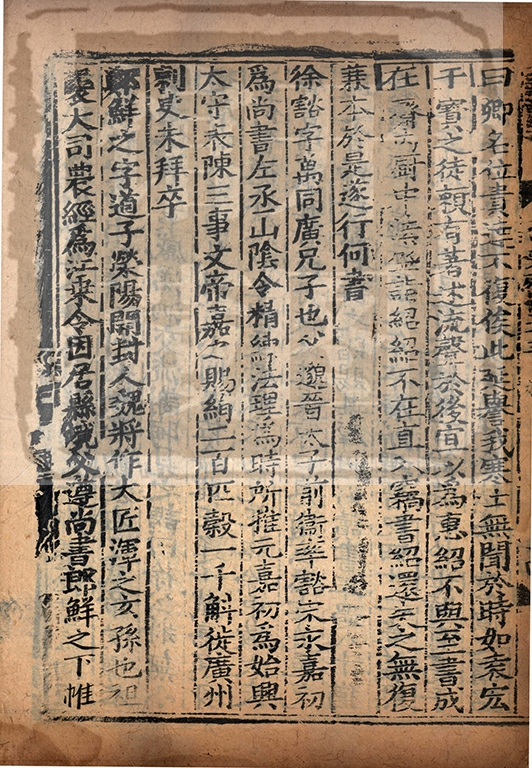 曰卿名位貴達不復俟此延譽我寒士無聞於時如袁宏
干寶之徒賴有著述流聲於後宜以為惠紹不與至書成
在齋內厨中法盛詣紹紹不在直入竊書紹還失之無復
兼本於是遂行何書
徐豁字萬同廣兄子也父邈晉太子前衛率豁宋永嘉初
為尚書左丞山陰令精練法理為時所推元嘉初為始興
太守表陳三事文帝嘉之賜絹二百匹穀一千斛徙廣州
刺史未拜卒
鄭鮮之字道子滎陽開封人魏將作大匠渾之玄孫也祖
襲大司農經為江乘令因居縣境父遵尚書郎鮮之下帷